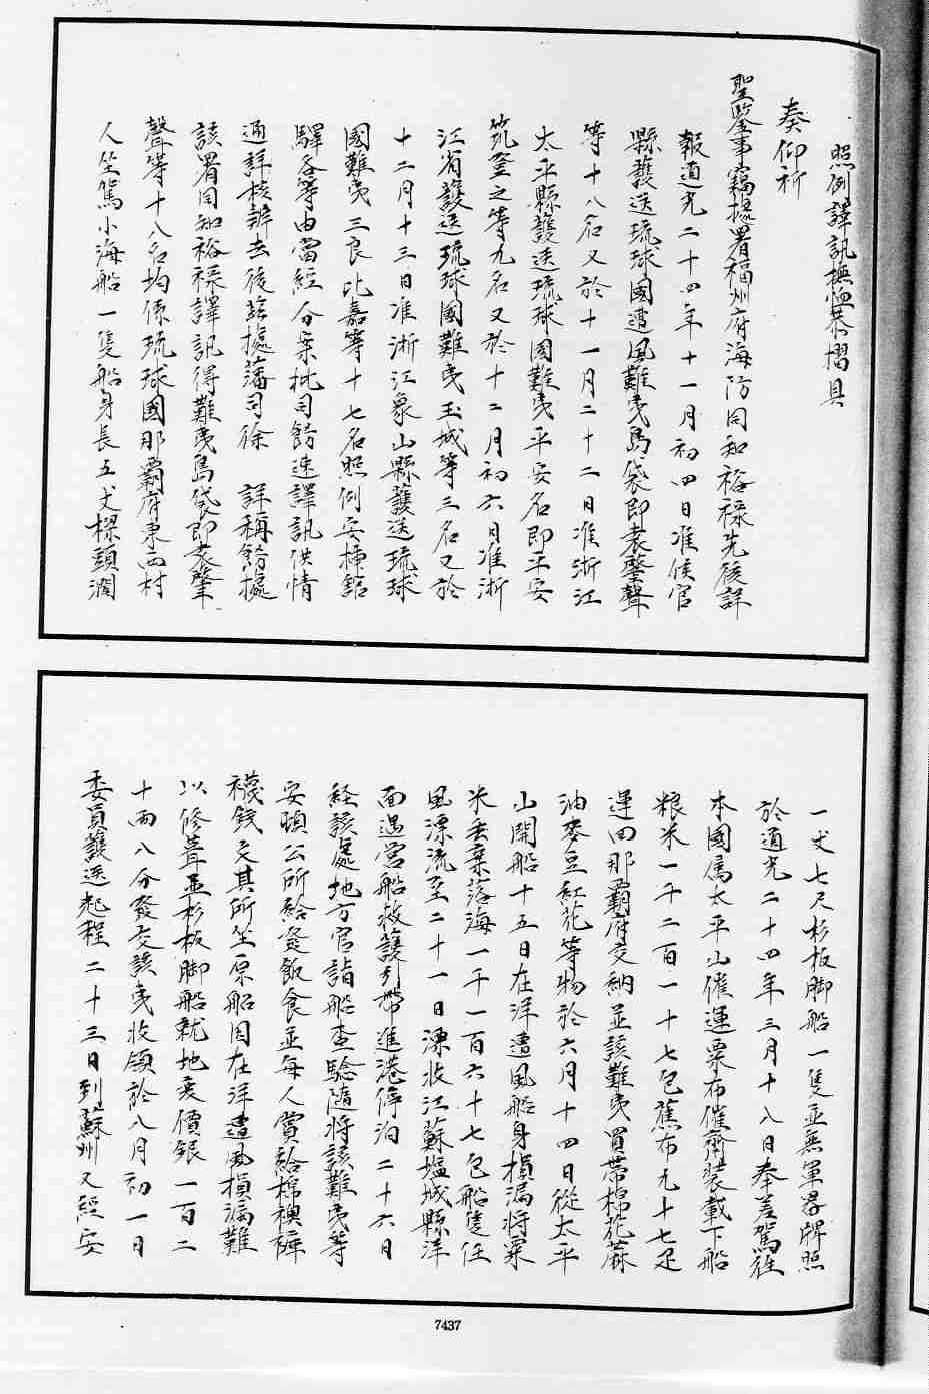 照例譯訊撫恤恭摺具
奏仰祈
聖鑒事竊據署福州府海防同知裕祿先後詳
報道光二十四年十一月初四日准候官
縣護送琉球國遭風難夷島袋即袁肇聲
等十八名又於十一月二十二日准浙江
太平縣護送琉球國難夷平安名即平安
筑登之等九名又於十二月初六日准浙
江省護送琉球國難夷玉城等三名又於
十二月十三日准浙江象山縣護送琉球
國難夷三良比嘉等十七名照例安插館
驛各等由當經分案批司飭速譯訊供情
通詳核辦去後茲據藩司徐 詳稱飭據
該署同知裕祿譯訊得難夷島袋即袁肇
聲等十八名均係琉球國那霸府東西村
人坐駕小海船一隻船身長五丈樑頭濶
一丈七尺杉板脚船一隻並無軍器牌照
於道光二十四年三月十八日奉差駕往
本國属太平山催運粟布催齊裝載下船
粮米一千二百一十七包蕉布九十七疋
運回那霸府交納並該難夷買帶棉花蔴
油麥豆紅花等物於六月十四日從太平
山開船十五日在洋遭風船身損漏將粟
米丢棄落海一千一百六十七包船隻任
風漂流至二十一日漂收江蘇塩城縣洋
面遇營船救護引帶進港停泊二十六日
経該處地方官詣船查驗隨將該難夷等
安頓公所給發飯食並每人賞給棉襖褲
襪錢文其所坐原船因在洋遭風損漏難
以修葺並杉板脚船就地変價銀一百二
十両八分發交該夷收領於八月初一日
委員護送起程二十三日到蘇州又經安
7437